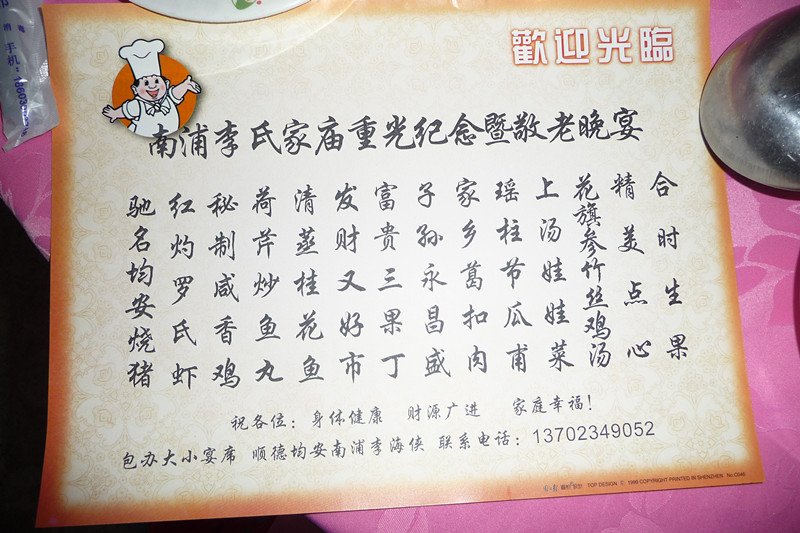 手机:
歡迎光臨
南浦李氏家庙重光纪念暨敬老晚宴
驰名均安烧猪
红灼罗氏虾
秘制咸香鸡
荷芹炒鱼丸
清蒸桂花鱼
发财又好市
富贵三果丁
子孙永昌盛
家乡葛扣肉
瑶柱节瓜甫
上汤娃娃菜
花旗参竹丝鸡汤
精美点心
合时生果
祝各位：身体健康 财源广进 家庭幸福！
包办大小宴席 顺德均安南浦李海侠 联系电话：13702349052
TOP DESIGN 1999 COPYRIGHT PRINTED IN SHENZHEN